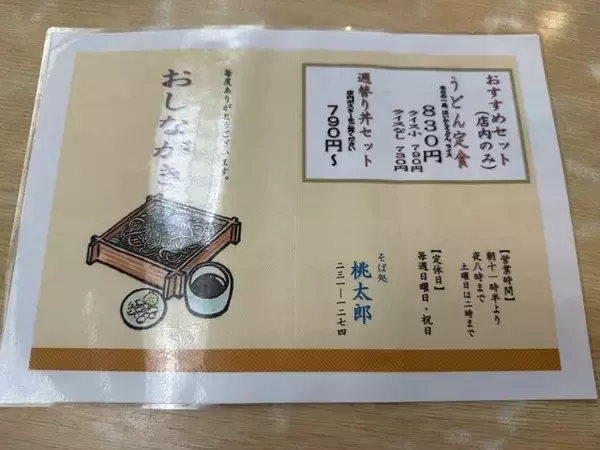 おすすめセット
(店内のみ)
うどん定食
830円
ライス小 790円
ライスなし 730円
週替り丼セット
790円~
毎度ありがとうございます。
おしながき
【営業時間】
朝十一時半より
夜八時まで
土曜日は二時まで
【定休日】
毎週日曜日・祝日
そば処
桃太郎
二三一ー一二七四